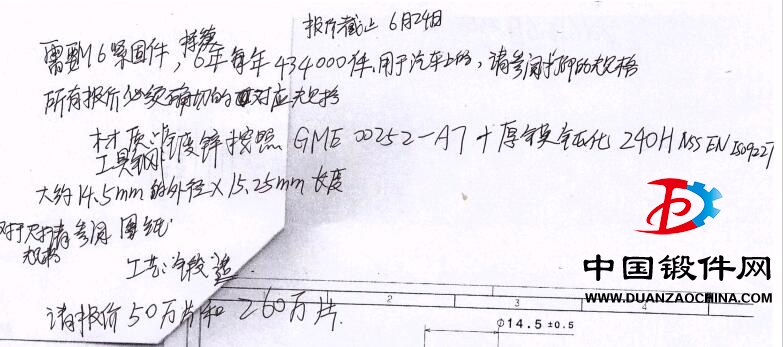 报价截止 6月24日
需要M6紧固件，持续6年每年434000件，用于汽车上的，请参阅打印的规格
所有报价必须确切的对应规格
材质：镀锌按照 GME 00252-A7 + 厚镀钝化 240H NSS EN ISO9227
工具钢
大约14.5mm的外径 X 15.25mm 长度
对于尺寸请参阅 图纸
规格
工艺：冷锻造
请报价50万片和 260万片.
2
3
4
Φ14.5 ±0.5
中国锻件网
WWW.DUANZAOCHINA.COM